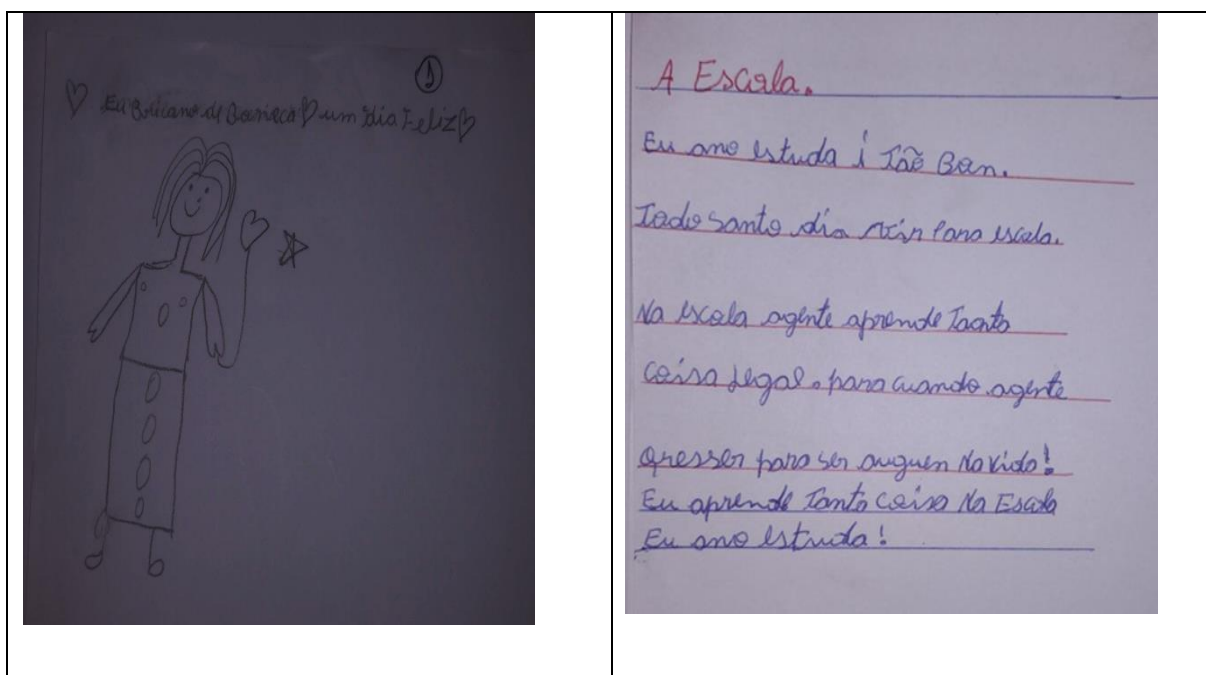 1
Eu Bricano de Boneca um dia Feliz
A Escola.
Eu amo estuda i Tão Bon.
Todo santo dia vin Para escola.
Na escola agente aprende Tanto
Coisa legal. para cuando agente
qresser para ser auguen Na vida!
Eu aprende Tanto Coisa Na Escola
Eu amo estuda!